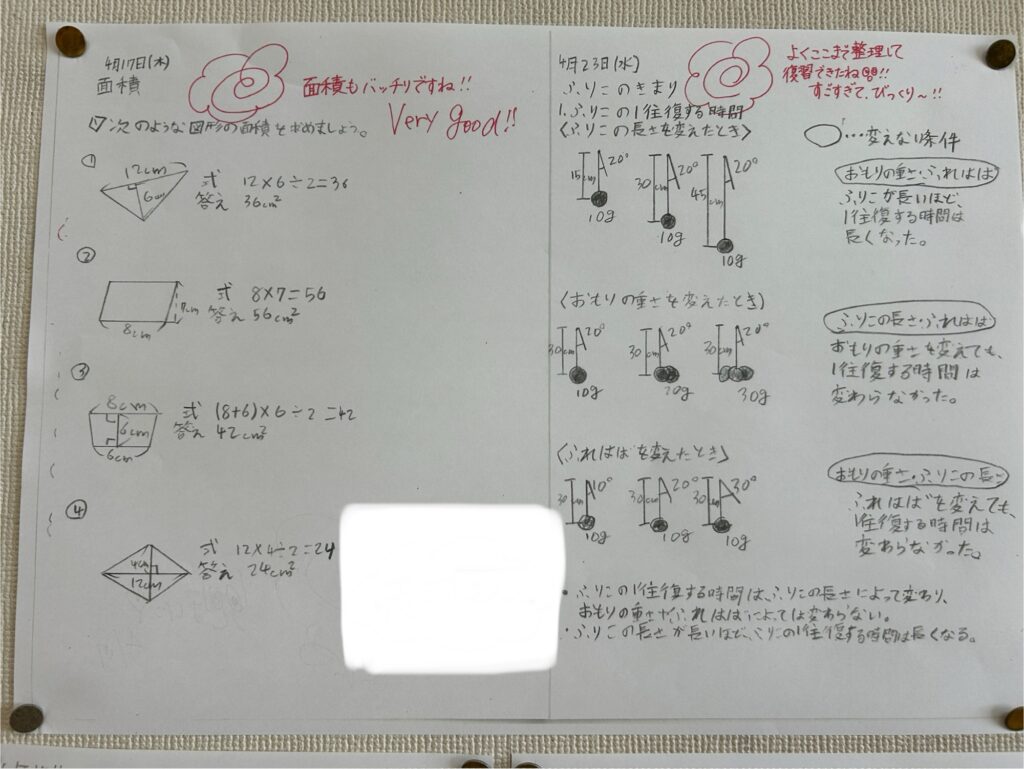 4月17日(木)
面積
面積もバッチリですね!!
Very good!!
次のような図形の面積を求めましょう。
①
12cm
6cm
式 12×6÷2=36
答え 36cm²
②
7cm
8cm
式 8×7=56
答え 56cm²
③
8cm
6cm
6cm
式 (8+6)×6÷2=42
答え 42cm²
④
4cm
12cm
式 12×4÷2=24
答え 24cm²
4月23日(水)
ふりこのきまり
よくここまで整理して
復習できたね!!
すごすぎて、びっくり〜!!
1.ふりこの1往復する時間
〈ふりこの長さを変えたとき〉
…変えない条件
15cm 20° 10g
30cm 20° 10g
45cm 20° 10g
おもりの重さ・ふれはば
ふりこが長いほど、
1往復する時間は
長くなった。
〈おもりの重さを変えたとき〉
30cm 20° 10g
30cm 20° 20g
30cm 20° 30g
ふりこの長さ・ふれはば
おもりの重さを変えても、
1往復する時間は
変わらなかった。
〈ふれはばを変えたとき〉
30cm 10° 10g
30cm 20° 10g
30cm 30° 10g
おもりの重さ・ふりこの長さ
ふれはばを変えても、
1往復する時間は
変わらなかった。
・ふりこの1往復する時間は、ふりこの長さによって変わり、
おもりの重さやふれはばによっては変わらない。
・ふりこの長さが長いほど、ふりこの1往復する時間は長くなる。